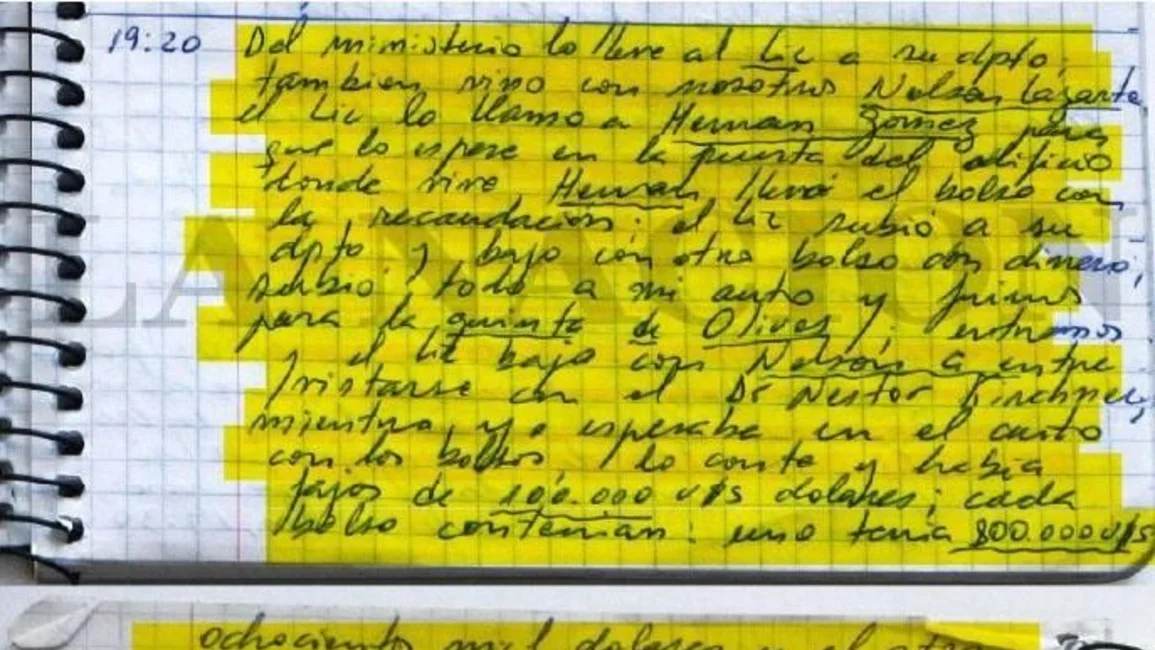 19:20 Del mimisterio lo lleve al Lic a su dpto,
tambien vino con nosotros Nelson Lazarte
el Lic lo llamo a Hernan Gomez para
que lo espere en la puerta del edificio
donde vive, Hernan llevó el bolso con
la recaudacion; el Lic subió a su
dpto y bajo con otro bolso con dinero,
subio todo a mi auto y fuimos
para la quinta de Olivos; entramos
y el Lic bajo con Nelson a entre
vistarse con el Dr Nestor Kirchner,
mientras yo esperaba en el auto
con los bolsos, lo conte y habia
fajos de 100.000 U$S dolares; cada
bolso contenian: uno tenia 800.000 U$S
ochociento mil dolares y el otro
LA NACION